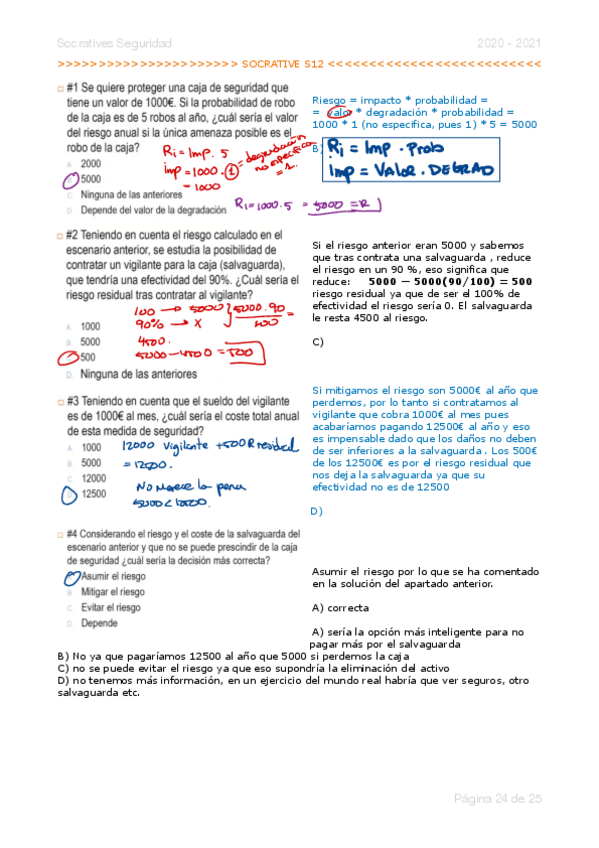 Socratives Seguridad 2020 - 2021
>>>>>>>>>>>>>>>>>>>>>> SOCRATIVE S12 <<<<<<<<<<<<<<<<<<<<<<<<<<
#1 Se quiere proteger una caja de seguridad que
tiene un valor de 1000€. Si la probabilidad de robo
de la caja es de 5 robos al año, ¿cuál sería el valor
del riesgo anual si la única amenaza posible es el
robo de la caja?
A. 2000
5000
C. Ninguna de las anteriores
D. Depende del valor de la degradación
Ri = Imp. 5
imp = 1000 . 1 = degradación
no especifica
= 1.
= 1000
Ri = 1000.5 = 5000 = R
Riesgo = impacto * probabilidad =
= valor * degradación * probabilidad =
1000 * 1 (no especifica, pues 1) * 5 = 5000
B)
Ri = Imp . Prob
Imp = VALOR . DEGRAD
#2 Teniendo en cuenta el riesgo calculado en el
escenario anterior, se estudia la posibilidad de
contratar un vigilante para la caja (salvaguarda),
que tendría una efectividad del 90%. ¿Cuál sería el
riesgo residual tras contratar al vigilante?
A. 1000
B. 5000
500
D. Ninguna de las anteriores
100 → 5000
90% → X
5000.90
100
=
4500.
5000 - 4500 = 500
Si el riesgo anterior eran 5000 y sabemos
que tras contrata una salvaguarda , reduce
el riesgo en un 90 %, eso significa que
reduce: 5000 − 5000(90/100) = 500
riesgo residual ya que de ser el 100% de
efectividad el riesgo sería 0. El salvaguarda
le resta 4500 al riesgo.
C)
#3 Teniendo en cuenta que el sueldo del vigilante
es de 1000€ al mes, ¿cuál sería el coste total anual
de esta medida de seguridad?
A. 1000
B. 5000
C. 12000
12500
12000 Vigilante + 500 R residual
= 12500.
No merece la pena
5000 < 12500.
Si mitigamos el riesgo son 5000€ al año que
perdemos, por lo tanto si contratamos al
vigilante que cobra 1000€ al mes pues
acabaríamos pagando 12500€ al año y eso
es impensable dado que los daños no deben
de ser inferiores a la salvaguarda . Los 500€
de los 12500€ es por el riesgo residual que
nos deja la salvaguarda ya que su
efectividad no es de 12500
D)
#4 Considerando el riesgo y el coste de la salvaguarda del
escenario anterior y que no se puede prescindir de la caja
de seguridad ¿cuál sería la decisión más correcta?
Asumir el riesgo
B. Mitigar el riesgo
C. Evitar el riesgo
D. Depende
Asumir el riesgo por lo que se ha comentado
en la solución del apartado anterior.
A) correcta
A) sería la opción más inteligente para no
pagar más por el salvaguarda
B) No ya que pagaríamos 12500 al año que 5000 si perdemos la caja
C) no se puede evitar el riesgo ya que eso supondría la eliminación del activo
D) no tenemos más información, en un ejercicio del mundo real habría que ver seguros, otro
salvaguarda etc.
Página 24 de 25